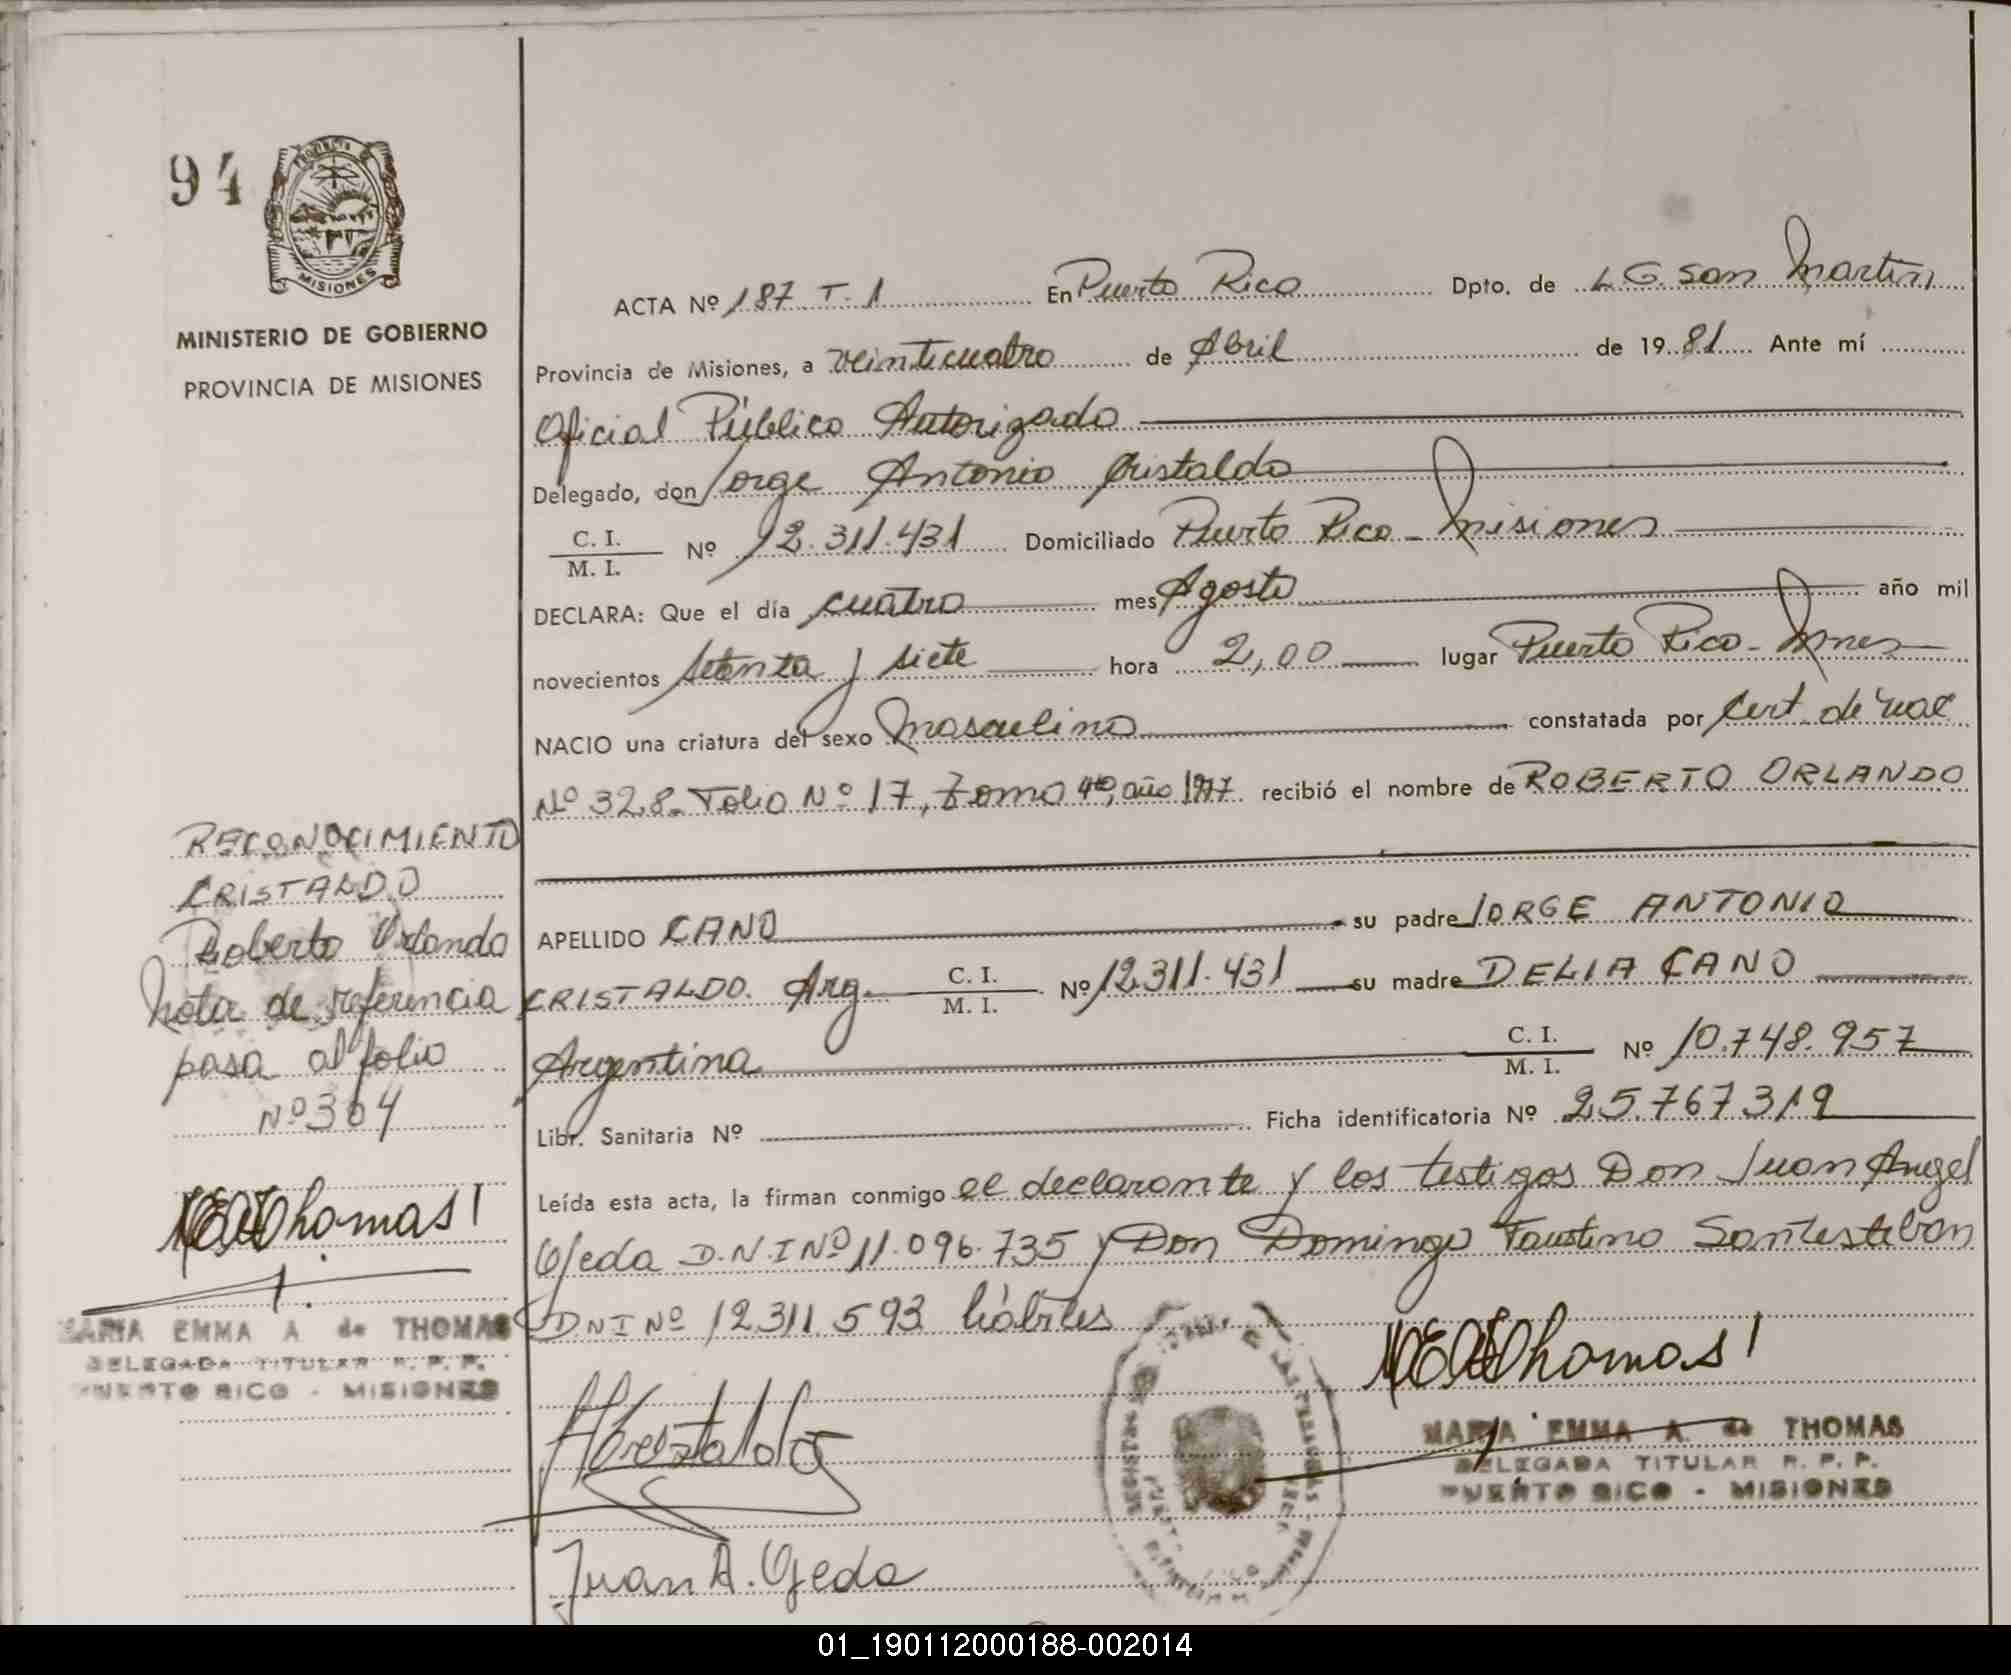 94
PROVINCIA DE
MISIONES
MINISTERIO DE GOBIERNO
PROVINCIA DE MISIONES
ACTA Nº 187 T. 1 En Puerto Rico Dpto. de L G. San Martin
Provincia de Misiones, a veinticuatro de Abril de 1981 Ante mí
Oficial Público Autorizado
Delegado, don Jorge Antonio Cristaldo
C. I.
M. I. Nº 12.311.431 Domiciliado Puerto Rico - Misiones
DECLARA: Que el día cuatro mes Agosto año mil
novecientos setenta y siete hora 2,00 lugar Puerto Rico - Mnes
NACIO una criatura del sexo Masculino constatada por Cert. de nac
Nº 328 - Folio Nº 17, Tomo 4to, año 1977 recibió el nombre de ROBERTO ORLANDO
APELLIDO CANO su padre JORGE ANTONIO
CRISTALDO. Arg. C. I.
M. I. Nº 12.311.431 su madre DELIA CANO
Argentina C. I.
M. I. Nº 10.748.957
Libr. Sanitaria Nº Ficha identificatoria Nº 25.767319
Leída esta acta, la firman conmigo el declarante y los testigos Don Juan Angel
Ojeda D.N.I Nº 11.096.735 y Don Domingo Faustino Santesteban
DNI Nº 12.311.593 hábiles
RECONOCIMIENTO
CRISTALDO
Roberto Orlando
Nota de referencia
pasa al folio
Nº 304
MEAdeThomas
MARIA EMMA A de THOMAS
DELEGADA TITULAR R. P. P.
PUERTO RICO - MISIONES
MEAdeThomas
MARIA EMMA A. de THOMAS
DELEGADA TITULAR R. P. P.
PUERTO RICO - MISIONES
JACristaldo
Juan A. Ojeda
01_190112000188-002014